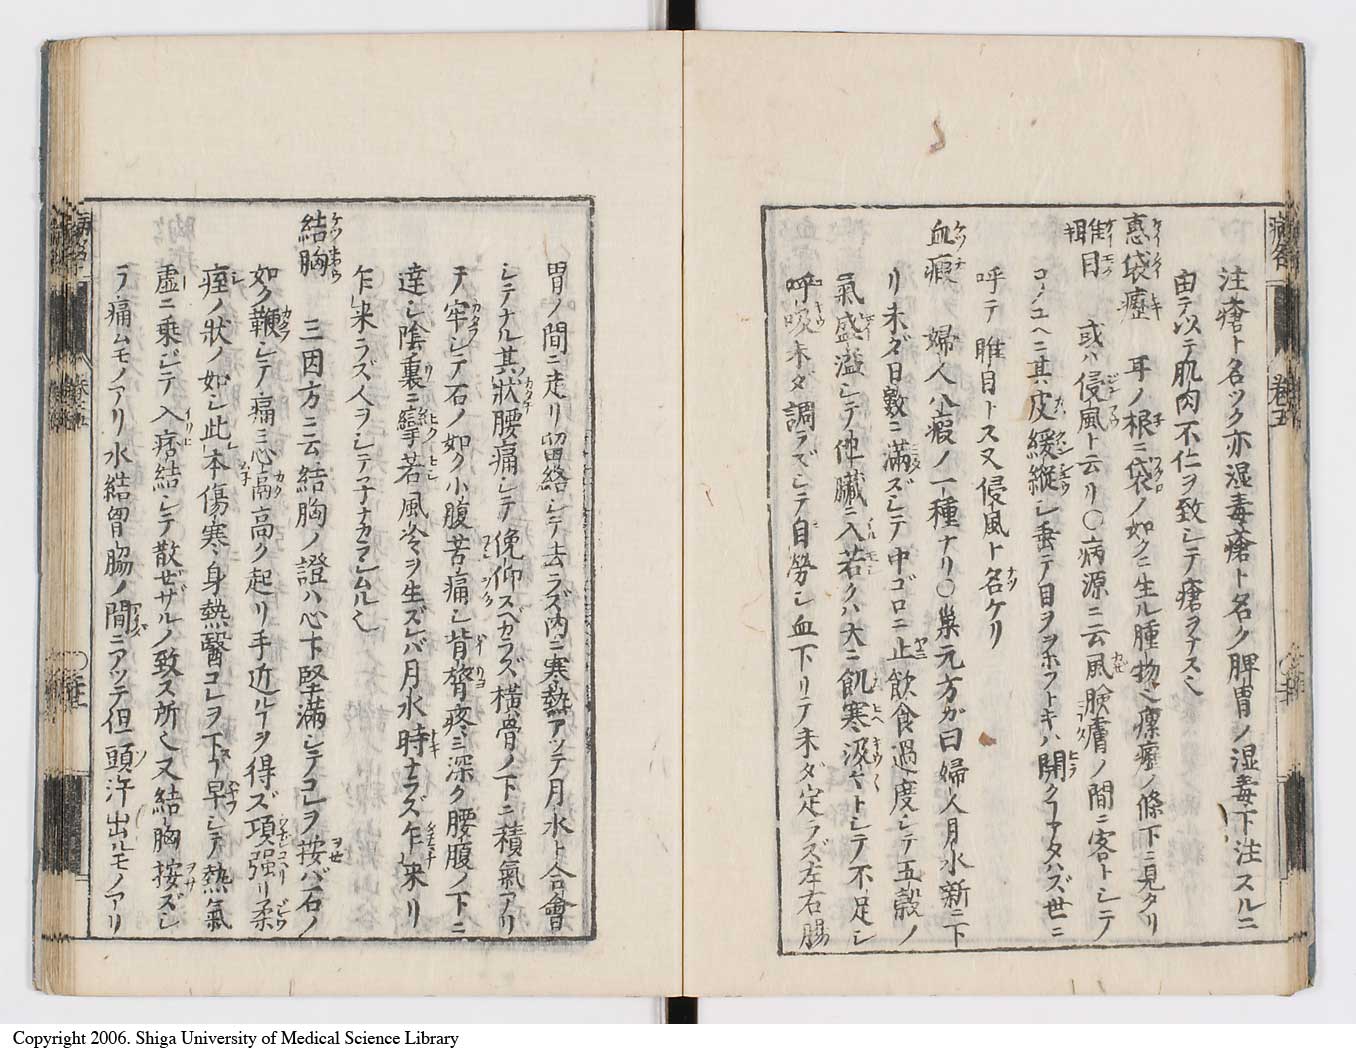 注瘡ト名ツク亦湿毒瘡ト名ク脾胃ノ湿毒下注スルニ
由テ以テ肌肉不仁ヲ致シテ瘡ヲナス也
恵袋癧 耳ノ根ニ袋ノ如クニ生ル腫物也瘰癧ノ條下ニ見タリ
睢目 或ハ侵風ト云リ〇病源ニ云風瞼膚ノ間ニ客トシテ
コノユヘニ其皮緩縱シ垂テ目ヲヲホフトキハ開クコアタハズ世ニ
呼テ睢目トス又侵風ト名ケリ
血瘕 婦人八瘕ノ一種ナリ〇巣元方ガ曰婦人月水新ニ下
リ未ダ日數ニ滿ズシテ中ゴロニ止飲食過度シテ五穀ノ
氣盛溢シテ他臟ニ入若クハ大ニ飢寒汲々トシテ不足シ
呼吸未タ調ラズシテ自勞シ血下リテ未ダ定ラズ左右腸
胃ノ間ニ走リ留絡シテ去ラズ内ニ寒熱アツテ月水ト合會
シテナル其狀腰痛シテ俛仰スベカラズ横骨ノ下ニ積氣アリ
テ牢シテ石ノ如ク小腹苦痛シ背膂疼ミ深ク腰腹ノ下ニ
達シ陰裏ニ攣若風冷ヲ生ズレバ月水時ナラズ乍來リ
乍來ラズ人ヲシテ子ナカラシムル也
結胸 三因方ニ云結胸ノ證ハ心下堅滿シテコレヲ按バ石ノ
如ク鞕シテ痛ミ心膈高ク起リ手近ルヿヲ得ズ項强リ柔
痓ノ狀ノ如シ此本傷寒身熱醫コレヲ下ヿ早シテ熱氣
虛ニ乘ジテ入痞結シテ散ゼザルノ致ス所也又結胸按ズレ
ヲ痛ムモノアリ水結胃脇ノ間ニアツテ但頭汗出ルモノアリ
卷五
Copyright 2006. Shiga University of Medical Science Library